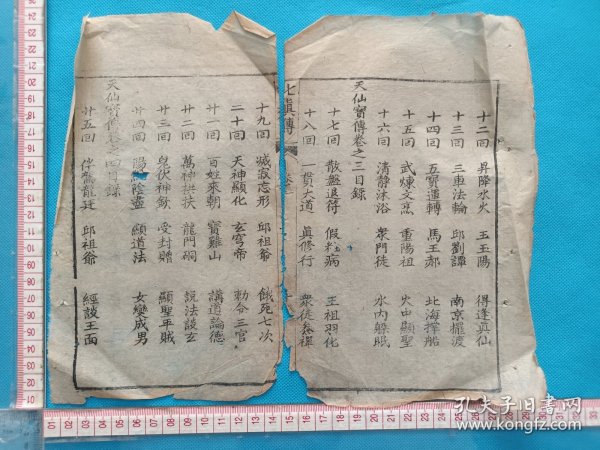 十二回 昇降水火 王玉陽 得逢真仙
十三回 三車法輪 邱劉譚 南京擺渡
十四回 五寶運轉 馬王郝 北海撑船
十五回 武煉文烹 重陽祖 火中顯聖
十六回 清靜沐浴 衆門徒 水內躲眠
天仙寶傳卷之三目錄
十七回 散盤退符 假 病 王祖羽化
十八回 一貫大道 真修行 衆徒参禪
七真傳
十九回 滅寂忘形 邱祖爺 餓死七次
二十回 天神顯化 玄穹帝 勅令三官
廿一回 百姓來朝 寶雞山 講道論德
廿二回 萬神拱扶 龍門硐 說法談玄
廿三回 鬼伏神欽 受封贈 顯聖平賊
廿四回 陽 陰盡 顯道法 女變成男
天仙寶傳卷之四目錄
廿五回 伴駕龍廷 邱祖爺 經談王面
孔夫子旧书网
www.kongfz.com